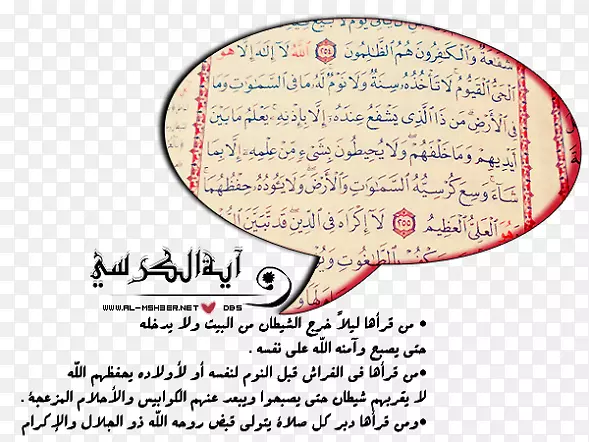 شَفَٰعَةٌ وَٱلْكَٰفِرُونَ هُمُ ٱلظَّٰلِمُونَ ٢٥٤ ٱللَّهُ لَآ إِلَٰهَ إِلَّا هُوَ
ٱلْحَىُّ ٱلْقَيُّومُ لَا تَأْخُذُهُۥ سِنَةٌ وَلَا نَوْمٌ لَّهُۥ مَا فِى ٱلسَّمَٰوَٰتِ وَمَا
فِى ٱلْأَرْضِ مَن ذَا ٱلَّذِى يَشْفَعُ عِندَهُۥٓ إِلَّا بِإِذْنِهِۦ يَعْلَمُ مَا بَيْنَ
أَيْدِيهِمْ وَمَا خَلْفَهُمْ وَلَا يُحِيطُونَ بِشَىْءٍ مِّنْ عِلْمِهِۦٓ إِلَّا بِمَا
شَآءَ وَسِعَ كُرْسِيُّهُ ٱلسَّمَٰوَٰتِ وَٱلْأَرْضَ وَلَا يَـُٔودُهُۥ حِفْظُهُمَا
وَهُوَ ٱلْعَلِىُّ ٱلْعَظِيمُ ٢٥٥ لَآ إِكْرَاهَ فِى ٱلدِّينِ قَد تَّبَيَّنَ
آية الكرسي
WWW.AL-MSHEER.NET DBS
• من قرأها ليلاً خرج الشيطان من البيت ولا يدخله
حتى يصبح وآمنه الله على نفسه .
•من قرأها فى الفراش قبل النوم لنفسه أو لأولاده يحفظهم الله
لا يقربهم شيطان حتى يصبحوا ويبعد عنهم الكوابيس والأحلام المزعجة .
•ومن قرأها دبر كل صلاة يتولى قبض روحه الله ذو الجلال والإكرام